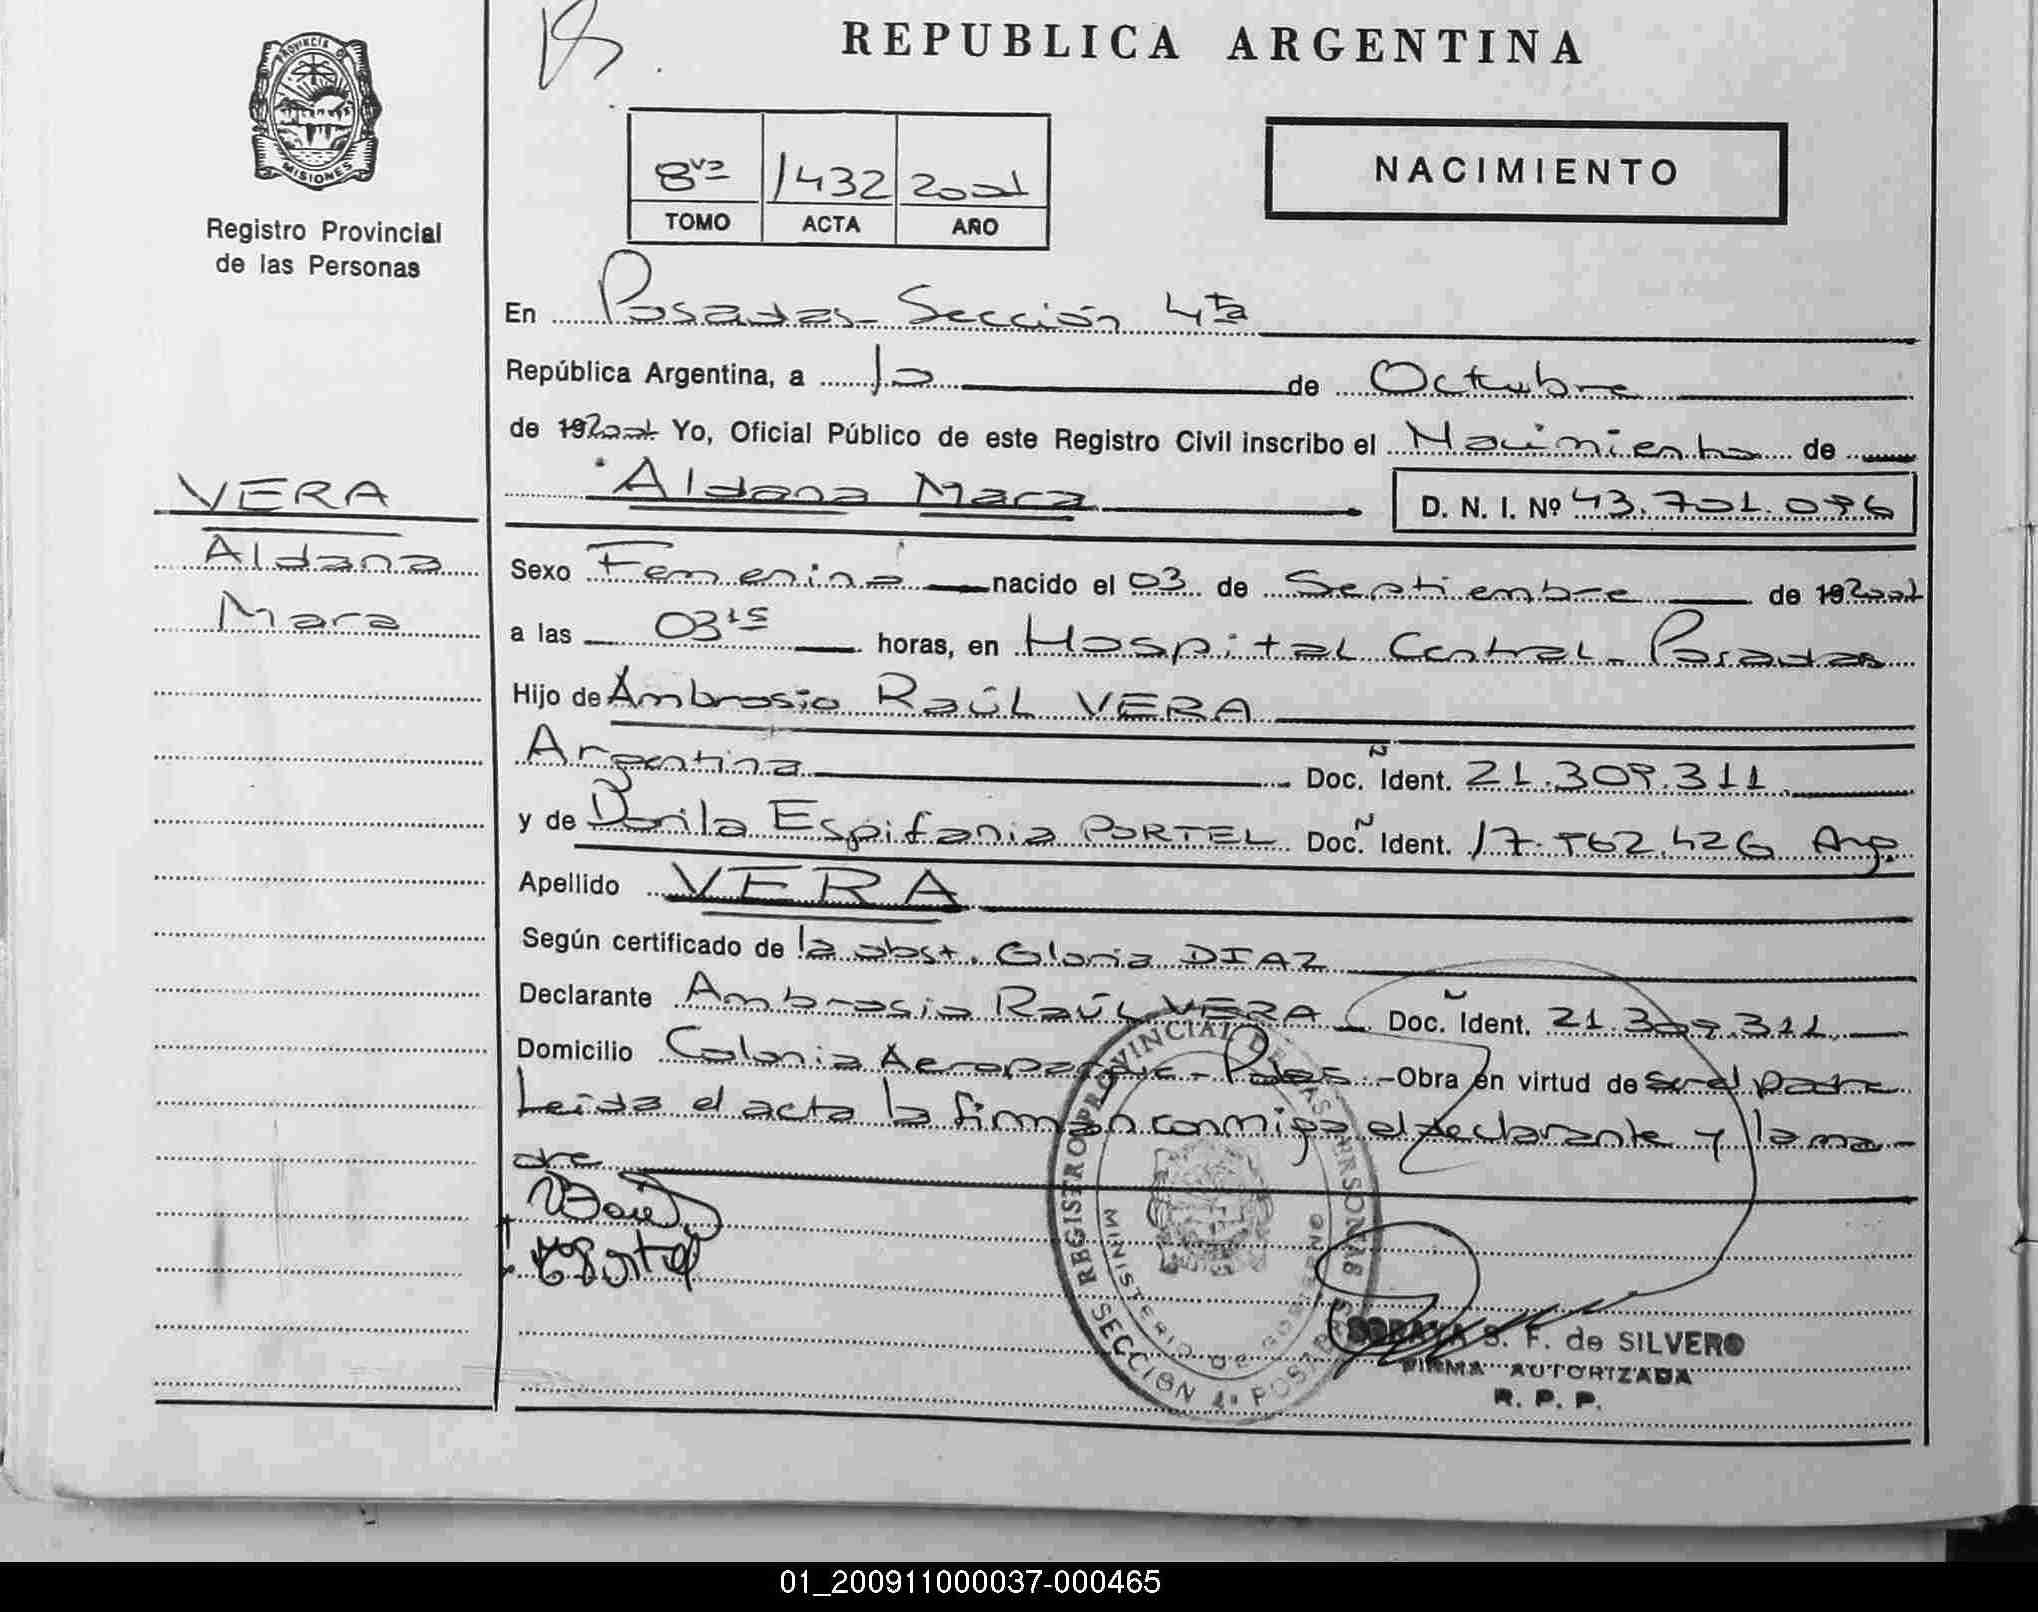 PROVINCIA D
MISIONES
Registro Provincial
de las Personas
REPUBLICA ARGENTINA
8va 1432 2001
TOMO ACTA AÑO
NACIMIENTO
En Posadas - Sección 4ta
República Argentina, a 10 de Octubre
de 192001 Yo, Oficial Público de este Registro Civil inscribo el Nacimiento de
Aldana Mara D. N. I. Nº 43.701.096
VERA
Aldana
Mara
Sexo Femenino nacido el 03 de Septiembre de 192001
a las 03 15 horas, en Hospital Central - Posadas
Hijo de Ambrosio Raúl VERA
Argentina Doc. Ident. 21.309.311
y de Dorila Espifania PORTEL Doc. Ident. 17.562.426 Arg.
Apellido VERA
Según certificado de la obst. Gloria DIAZ
Declarante Ambrosio Raúl VERA Doc. Ident. 21.309.311
Domicilio Colonia Aeroparque - Pdas - Obra en virtud de ser el padre
Leída el acta la firman conmigo el declarante y la ma-
dre
REGISTRO PROVINCIAL DE LAS PERSONAS
MINISTERIO DE GOBIERNO
SECCIÓN 4ª POSADAS
SORAYA S. F. de SILVERO
FIRMA AUTORIZADA
R. P. P.
01_200911000037-000465